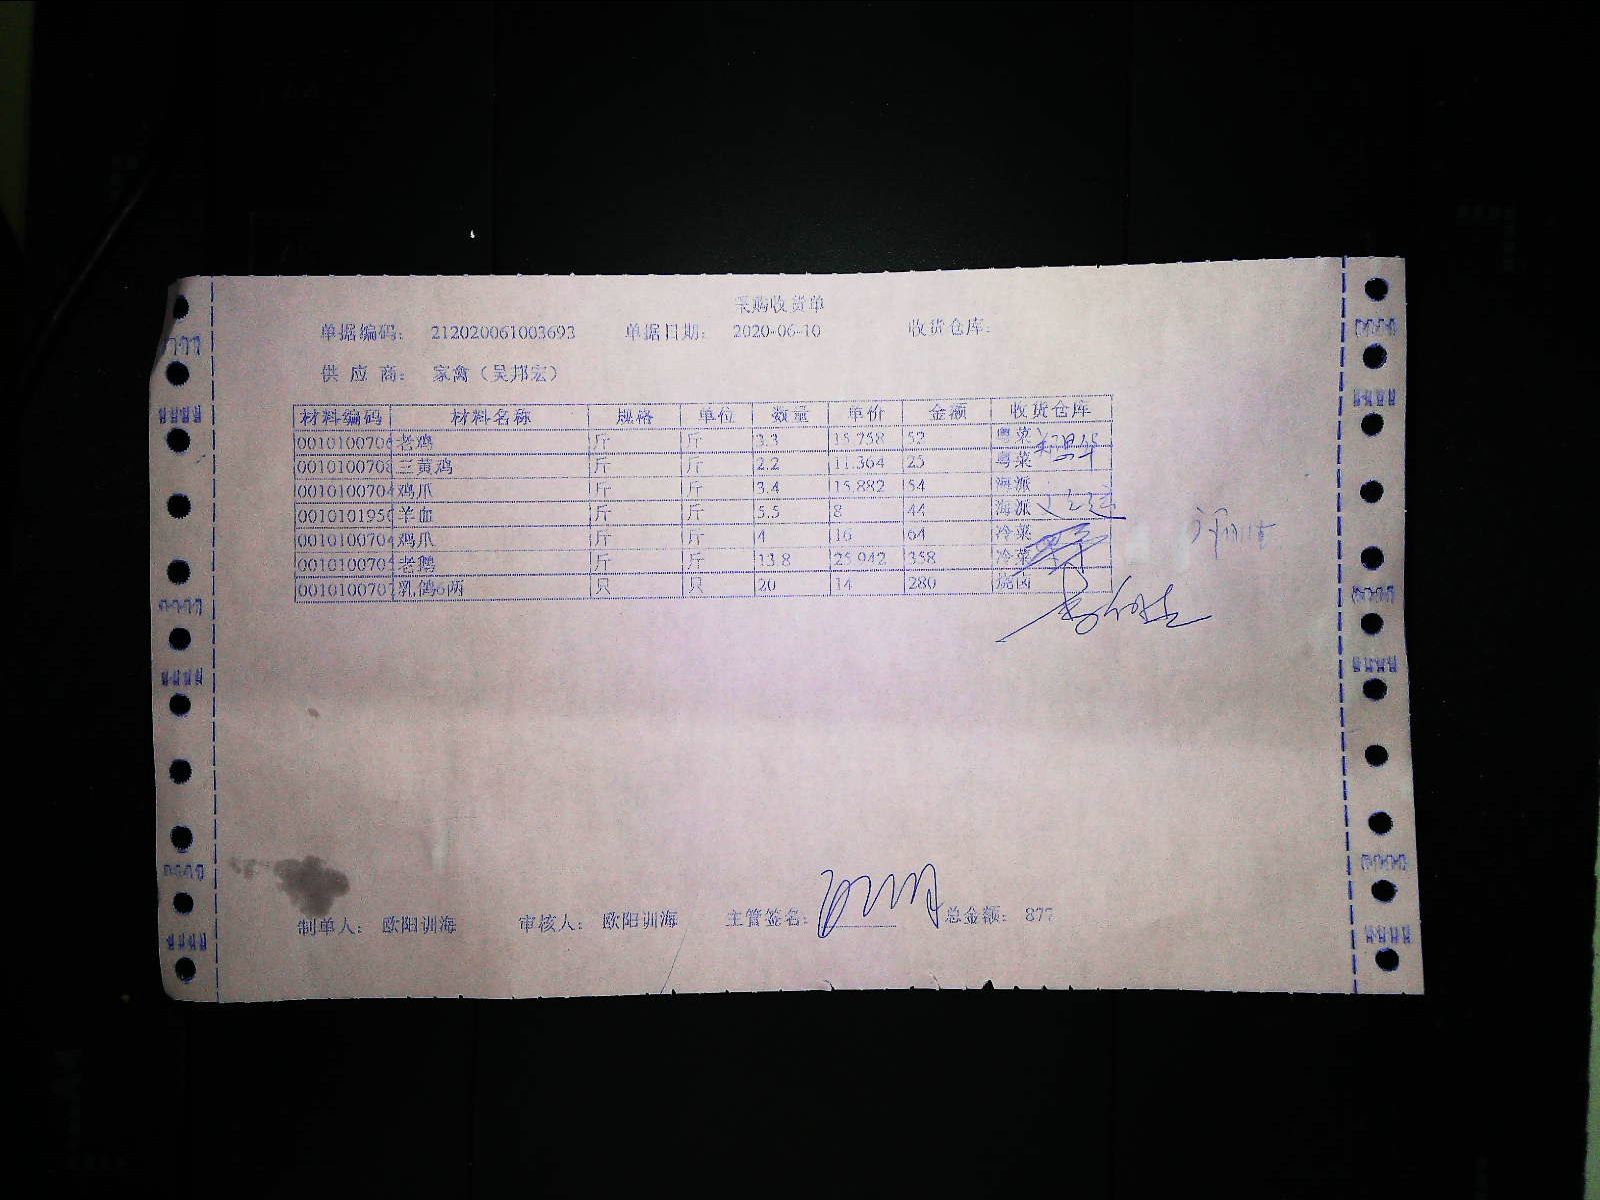 采购收货单
单据编码： 212020061003693 单据日期： 2020-06-10 收货仓库：
供 应 商： 家禽（吴邦宏）
材料编码 材料名称 规格 单位 数量 单价 金额 收货仓库
0010100706 老鸡 斤 斤 3.3 15.758 52 粤菜
0010100708 三黄鸡 斤 斤 2.2 11.364 25 粤菜
0010100704 鸡爪 斤 斤 3.4 15.882 54 海派
0010101950 羊血 斤 斤 5.5 8 44 海派
0010100704 鸡爪 斤 斤 4 16 64 冷菜
0010100705 老鹅 斤 斤 13.8 25.942 358 冷菜
0010100707 乳鸽6两 只 只 20 14 280 烧卤
制单人： 欧阳训海 审核人： 欧阳训海 主管签名： 总金额： 877